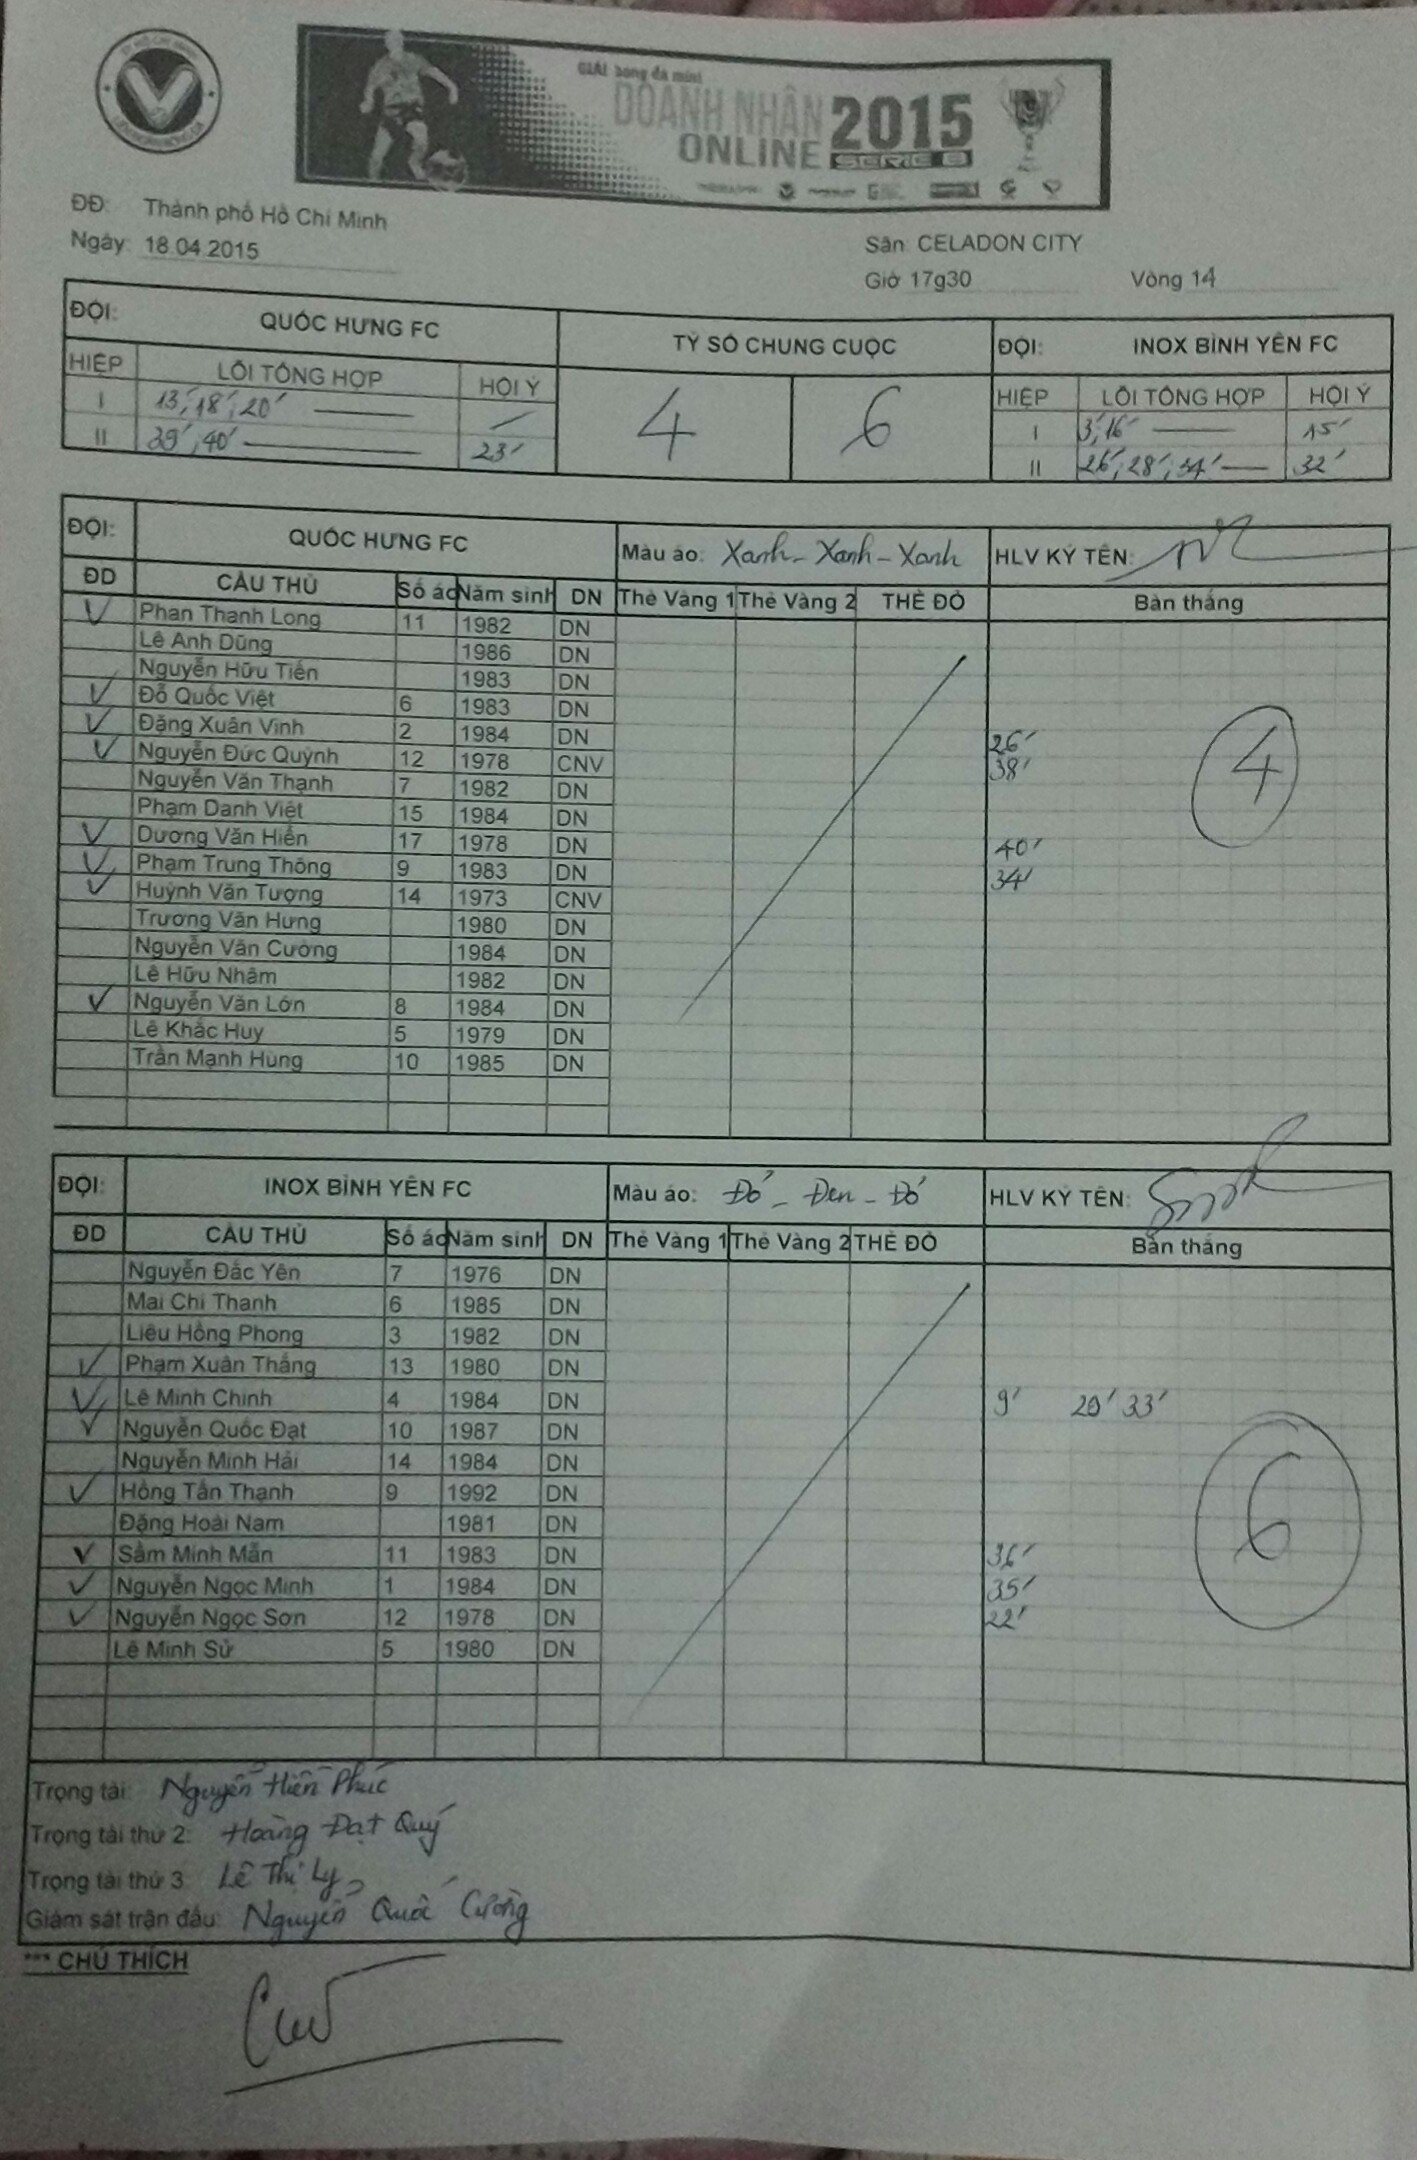 GIẢI bóng đá mini
DOANH NHÂN
ONLINE 2015
SERIE B
ĐĐ: Thành phố Hồ Chí Minh
Ngày: 18.04.2015
Sân: CELADON CITY
Giờ 17g30 Vòng 14
ĐỘI: QUỐC HƯNG FC TỶ SỐ CHUNG CUỘC ĐỘI: INOX BÌNH YÊN FC
HIỆP LỖI TỔNG HỢP HỘI Ý 4 6 HIỆP LỖI TỔNG HỢP HỘI Ý
I 13', 18', 20' I 3', 16' 15'
II 39', 40' 23' II 26', 28', 34' 32'
ĐỘI: QUỐC HƯNG FC Màu áo: Xanh - Xanh - Xanh HLV KÝ TÊN:
ĐD CẦU THỦ Số áo Năm sinh DN Thẻ Vàng 1 Thẻ Vàng 2 THẺ ĐỎ Bàn thắng
Phan Thanh Long 11 1982 DN
Lê Anh Dũng 1986 DN
Nguyễn Hữu Tiến 1983 DN
Đỗ Quốc Việt 6 1983 DN
Đặng Xuân Vinh 2 1984 DN 26'
Nguyễn Đức Quỳnh 12 1978 CNV 38'
Nguyễn Văn Thạnh 7 1982 DN
Phạm Danh Việt 15 1984 DN
Dương Văn Hiển 17 1978 DN 40'
Phạm Trung Thông 9 1983 DN 34'
Huỳnh Văn Tượng 14 1973 CNV
Trương Văn Hưng 1980 DN
Nguyễn Văn Cường 1984 DN
Lê Hữu Nhâm 1982 DN
Nguyễn Văn Lớn 8 1984 DN
Lê Khắc Huy 5 1979 DN
Trần Mạnh Hùng 10 1985 DN
4
ĐỘI: INOX BÌNH YÊN FC Màu áo: Đỏ - Đen - Đỏ HLV KÝ TÊN:
ĐD CẦU THỦ Số áo Năm sinh DN Thẻ Vàng 1 Thẻ Vàng 2 THẺ ĐỎ Bàn thắng
Nguyễn Đắc Yên 7 1976 DN
Mai Chí Thanh 6 1985 DN
Liêu Hồng Phong 3 1982 DN
Phạm Xuân Thắng 13 1980 DN
Lê Minh Chính 4 1984 DN 9' 20' 33'
Nguyễn Quốc Đạt 10 1987 DN
Nguyễn Minh Hải 14 1984 DN
Hồng Tấn Thạnh 9 1992 DN
Đặng Hoài Nam 1981 DN
Sầm Minh Mẫn 11 1983 DN 36'
Nguyễn Ngọc Minh 1 1984 DN 35'
Nguyễn Ngọc Sơn 12 1978 DN 22'
Lê Minh Sử 5 1980 DN
6
Trọng tài: Nguyễn Hiền Phúc
Trọng tài thứ 2: Hoàng Đạt Quý
Trọng tài thứ 3: Lê Thị Ly
Giám sát trận đấu: Nguyễn Quốc Cường
*** CHÚ THÍCH